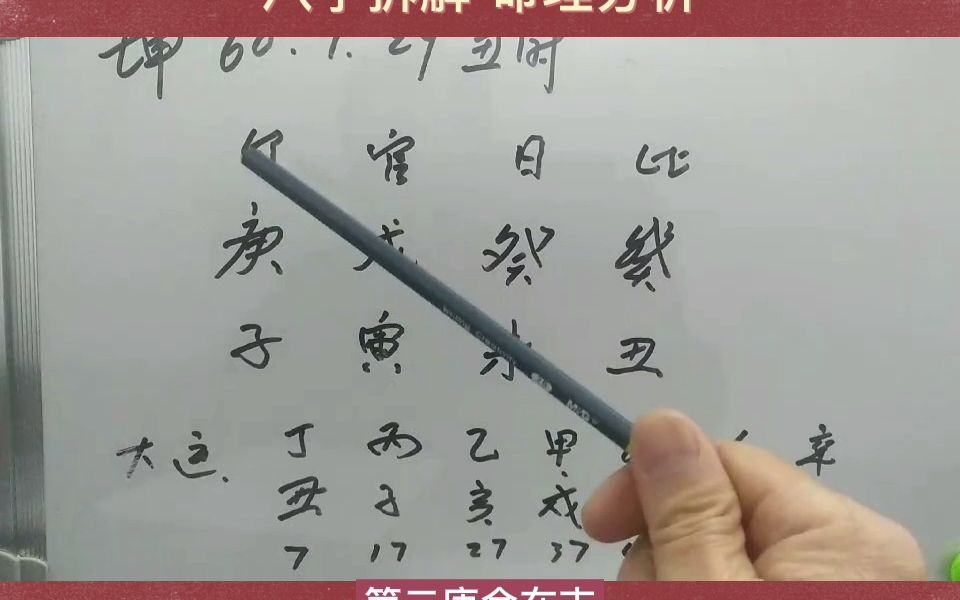 八字拆解 命理分析
坤 60.1.29 丑时
官 日 比
庚 戊 癸 癸
子 寅 未 丑
大运. 丁 丙 乙 甲 辛
丑 子 亥 戌
7 17 27 37